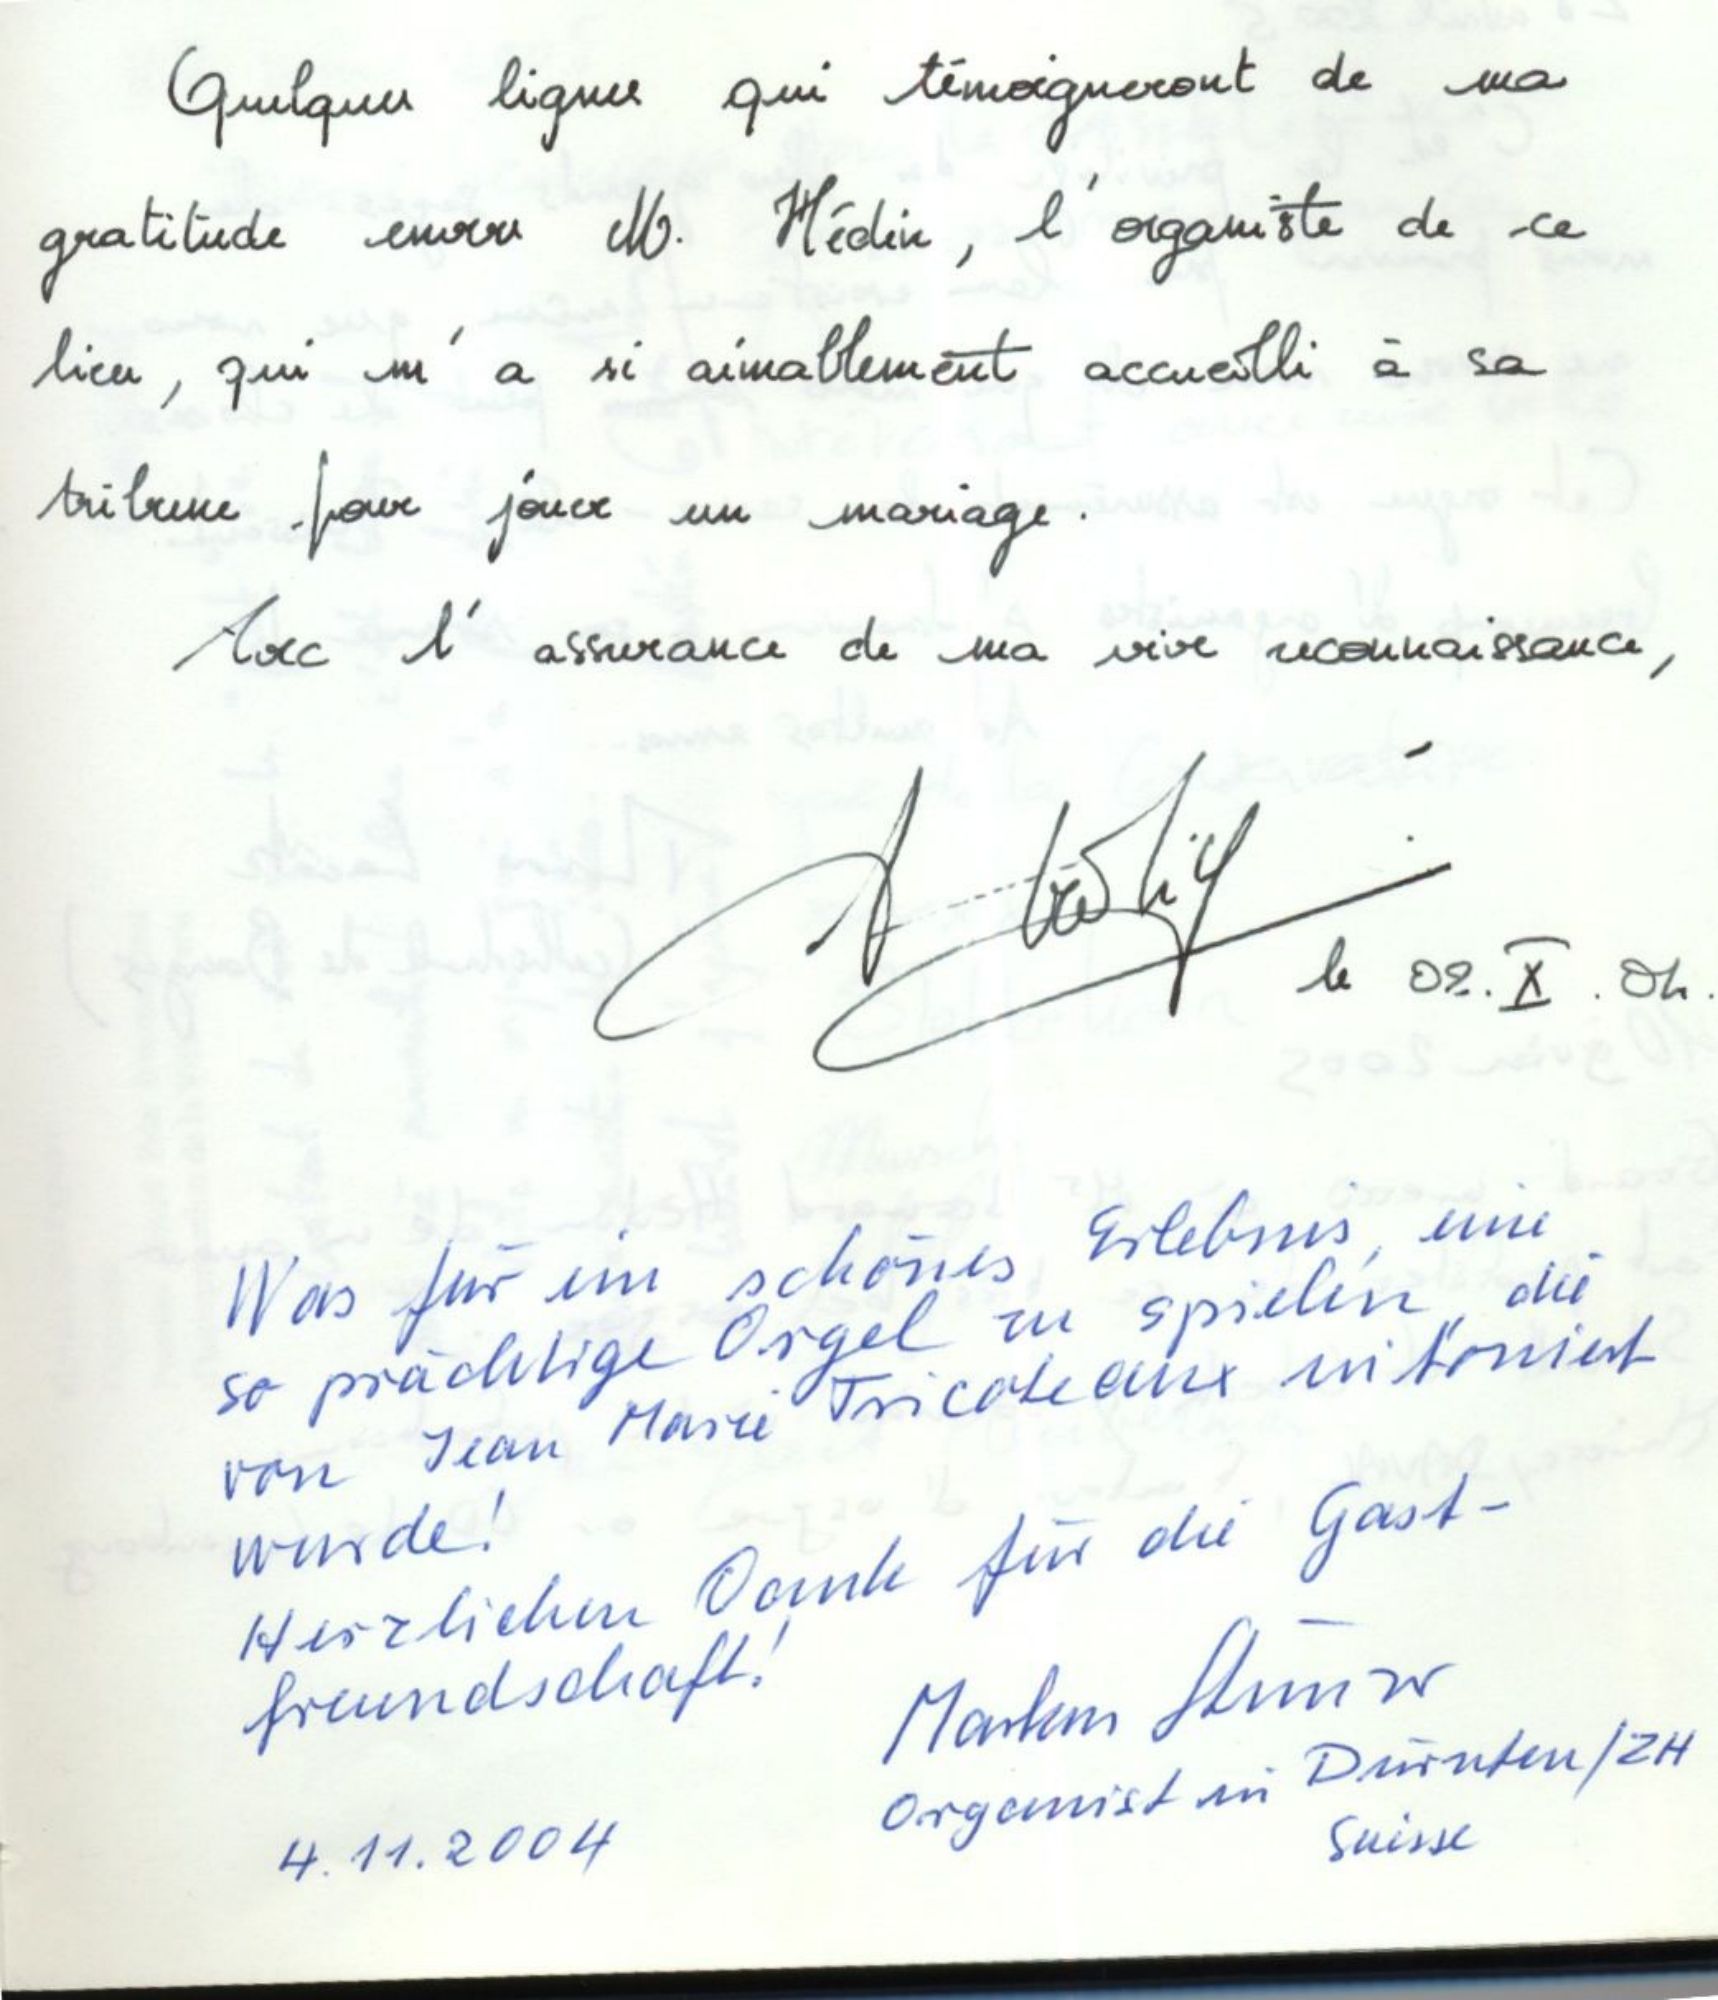 Quelques lignes qui témoigneront de ma
gratitude envers M. Hédin, l'organiste de ce
lieu, qui m'a si aimablement accueilli à sa
tribune pour jouer un mariage.
Avec l'assurance de ma vive reconnaissance,
le 02. X. 04.
Was für ein schönes Erlebnis, eine
so prächtige Orgel zu spielen, die
von Jean Marie Tricoteaux intoniert
wurde!
Herzlichen Dank für die Gast-
freundschaft!
Markus
Organist in Dürnten/ZH
Suisse
4.11.2004